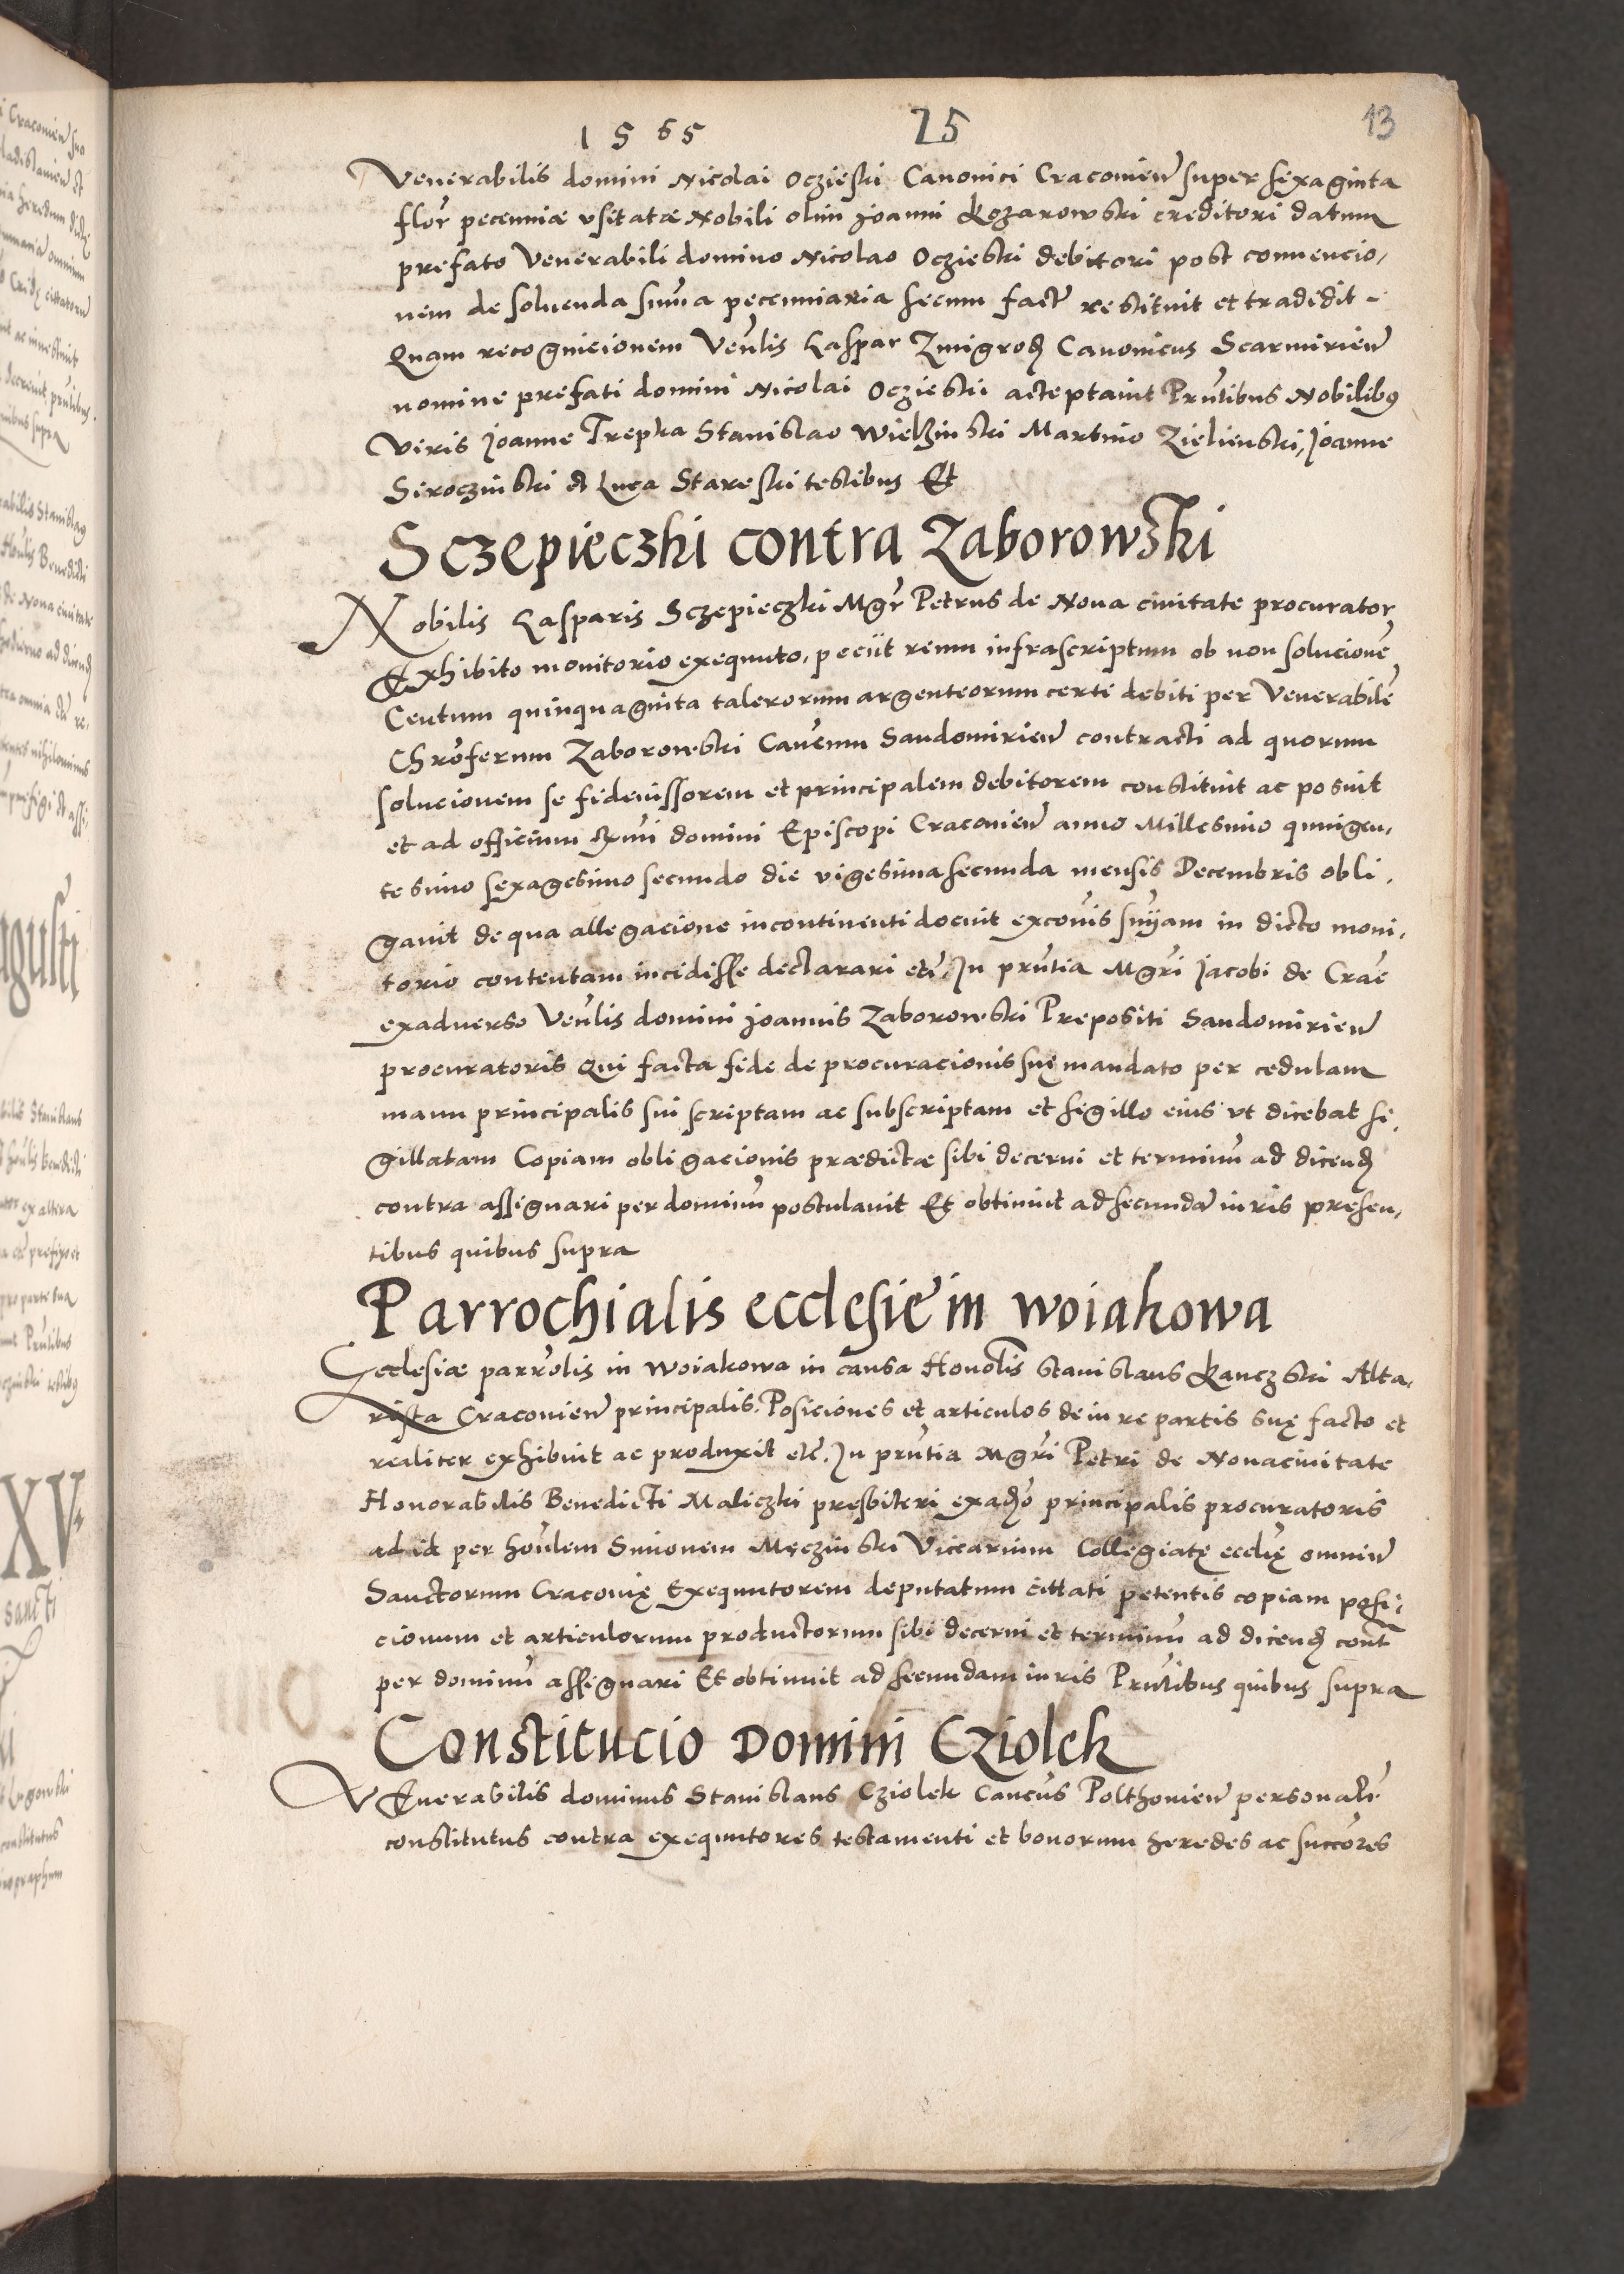 1565 25 13
Venerabilis domini Nicolai Oczieski Canonici Cracovien̄ super sexaginta
flor̄ pecenniæ vsitatæ Nobili olim Joanni Kozarowski creditori datum
prefato Venerabili domino Nicolao Oczieski debitori post convencio,
nem de soluenda sum̄a pecenniaria secum fact̄ restituit et tradidit -
Quam recognicionem Ven̄lis Caspar Zmigrod̄ Canonicus Scarmirien̄
nomine prefati domini Nicolai Oczieski acceptauit Prn̄tibus Nobilibꝰ
Viris Joanne Trepka Stanislao Wielẜinski Martino Zielienski, Joanne
Siroczinski et Luca Stareski testibus Et
Sczepieczki contra Zaborowski
Nobilis Casparis Sczepieczki Mgr̄ Petrus de Noua ciuitate procurator
Exhibito monitorio exequuto, peciit reum infrascriptum ob non solucionē
Centum quinquaginta talerorum argenteorum certi debiti per Venerabilē
Chrōferum Zaborowski Can̄cum Sandomirien̄ contracti ad quorum
solucionem se fideiussorem et principalem debitorem constituit ac posuit
et ad officium Rm̄i domini Episcopi Cracouien̄ anno Millesimo quingen,
tesimo sexagesimo secundo die vigesima secunda mensis Decembris obli,
gauit de qua allegacione incontinenti docuit excōnis sn̄iam in dicto moni,
torio contentam incidisse declarari etc̄. In prn̄tia Mgr̄i Jacobi de Crac̄
exaduerso Ven̄lis domini Joannis Zaborowski Prepositi Sandomirien̄
procuratoris Qui facta fide de procuracionis suę mandato per cedulam
manu principalis sui scriptam ac subscriptam et sigillo eius vt dicebat si,
gillatam Copiam obligacionis prædictæ sibi decerni et terminū ad dicend̄
contra assignari per dominū postulauit Et obtinuit ad secundā iuris presen,
tibus quibus supra
Parrochialis ecclesie in Woiakowa
Ecclesiæ parr̄olis in Woiakowa in causa Honor̄lis Stanislaus Kanczski Alta,
rista Cracouien̄ principalis. Posiciones et articulos de iure partis suę facto et
realiter exhibuit ac produxit etc̄. In prn̄tia Mgr̄i Petri de Nouaciuitate
Honorabilis Benedicti Maliczki presbiteri exad̄so principalis procuratoris
ad id per hon̄lem Simonem Męczinski Vicearium Collegiatę eccl̄ię omniū
Sanctorum Cracouię Exequutorem deputatum cittati petentis copiam posi,
cionum et articulorum productorum sibi decerni et terminū ad dicend̄ cont̄
per dominū assignari Et obtinuit ad secundam iuris Prn̄tibus quibus supra
Constitucio Domini Cziolek
VEnerabilis dominus Stanislaus Cziolek Can̄cus Polthouien̄ personalr̄
constitutus contra exequutores testamenti et bonorum heredes ac succōres